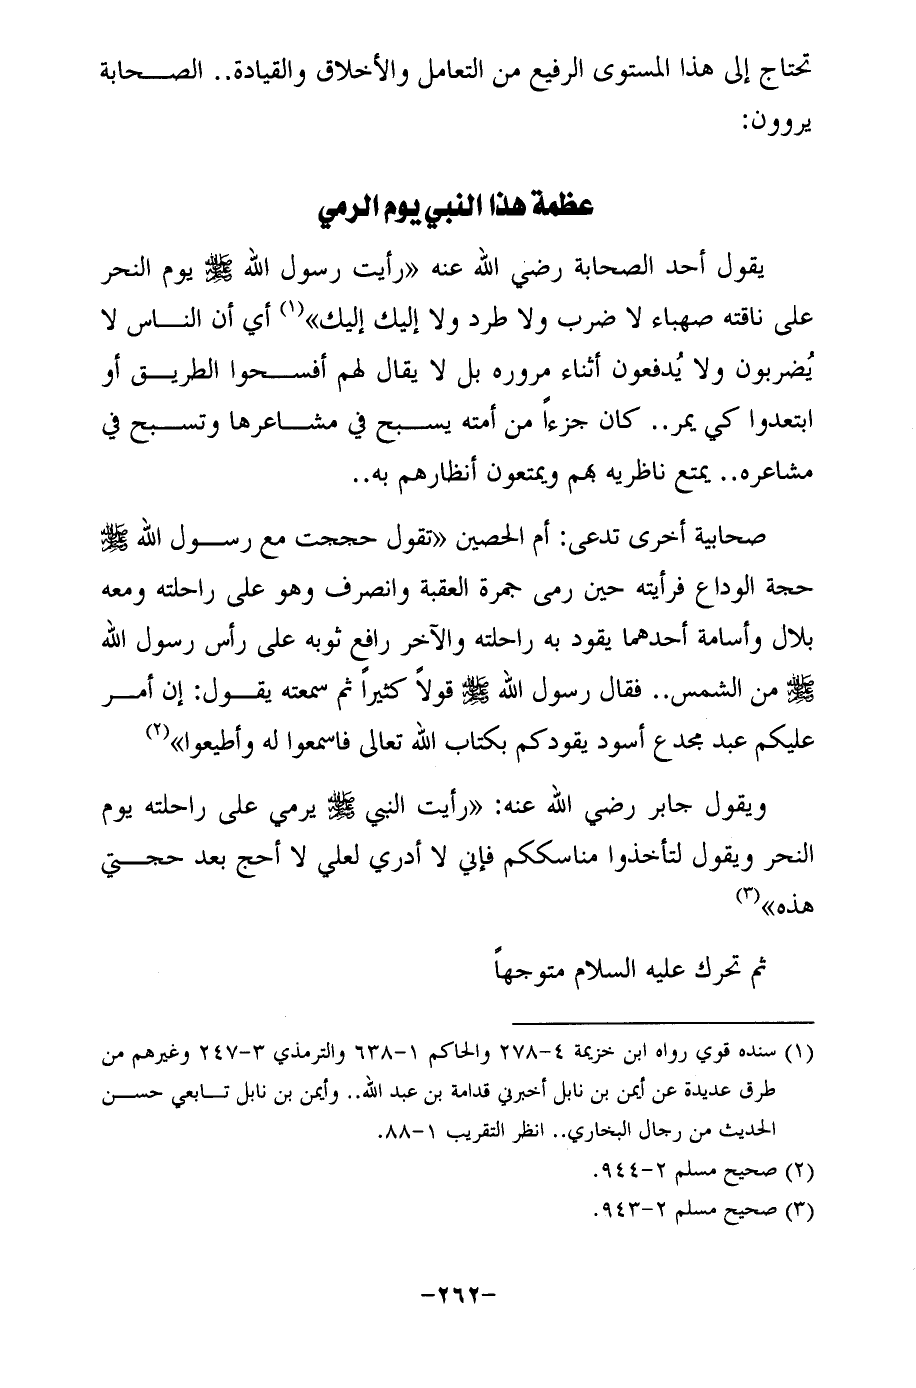 تحتاج إلى هذا المستوى الرفيع من التعامل والأخلاق والقيادة.. الصحابة
يروون:
عظمة هذا النبي يوم الرمي
يقول أحد الصحابة رضي الله عنه «رأيت رسول الله ﷺ يوم النحر
على ناقته صهباء لا ضرب ولا طرد ولا إليك إليك»(١) أي أن الناس لا
يُضربون ولا يُدفعون أثناء مروره بل لا يقال لهم أفسحوا الطريق أو
ابتعدوا كي يمر.. كان جزءاً من أمته يسبح في مشاعرها وتسبح في
مشاعره.. يمتع ناظريه بهم ويمتعون أنظارهم به..
صحابية أخرى تدعى: أم الحصين «تقول حججت مع رسول الله ﷺ
حجة الوداع فرأيته حين رمى جمرة العقبة وانصرف وهو على راحلته ومعه
بلال وأسامة أحدهما يقود به راحلته والآخر رافع ثوبه على رأس رسول الله
ﷺ من الشمس.. فقال رسول الله ﷺ قولاً كثيراً ثم سمعته يقول: إن أمر
عليكم عبد مجدع أسود يقودكم بكتاب الله تعالى فاسمعوا له وأطيعوا»(٢)
ويقول جابر رضي الله عنه: «رأيت النبي ﷺ يرمي على راحلته يوم
النحر ويقول لتأخذوا مناسككم فإني لا أدري لعلي لا أحج بعد حجتي
هذه»(٣)
ثم تحرك عليه السلام متوجهاً
(١) سنده قوي رواه ابن خزيمة ٤-٢٧٨ والحاكم ١-٦٣٨ والترمذي ٣-٢٤٧ وغيرهم من
طرق عديدة عن أيمن بن نابل أخبرني قدامة بن عبد الله.. وأيمن بن نابل تابعي حسن
الحديث من رجال البخاري.. انظر التقريب ١-٨٨.
(٢) صحيح مسلم ٢-٩٤٤.
(٣) صحيح مسلم ٢-٩٤٣.
-٢٦٢-